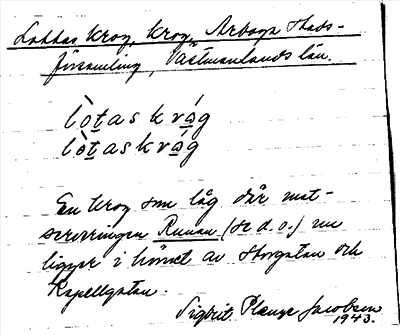 Lottas krog, krog, Arboga Stads-
församling, Västmanlands län.
lòt̲as kvá̲g
lòt̲as kvá̲g
En krog som låg där mat-
serveringen Runan (se d.o.) nu
ligger i hörnet av Storgatan och
Kapellgatan
Sigbrit Plænge Jacobson
1943.